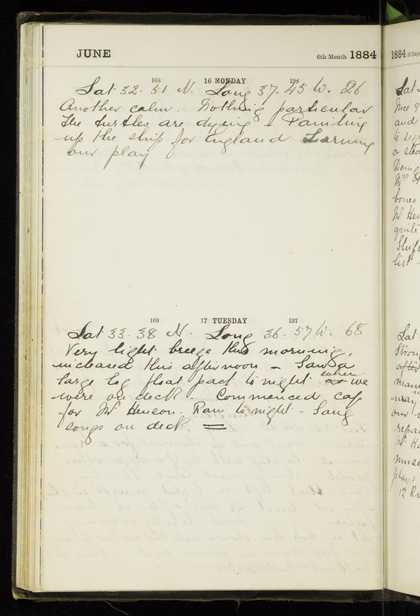 JUNE 6th Month 1884
168 16 MONDAY 198
Lat 32. 51 N. Long 37. 45 W. 26
Another calm. Nothing particular
The turtles are dying - Painting
up the ship for England Learning
our play
169 17 TUESDAY 197
Lat 33-38 N. Long 36-57 W. 68
Very light breeze this morning,
increased this afternoon - Saw a
large log float past to night when we
were on deck - Commenced cap
for Mr Henson. Rain to night - Sang
songs on deck
1884
Lat
and
a
bones
list
Lat
Strong
after
many
our
play